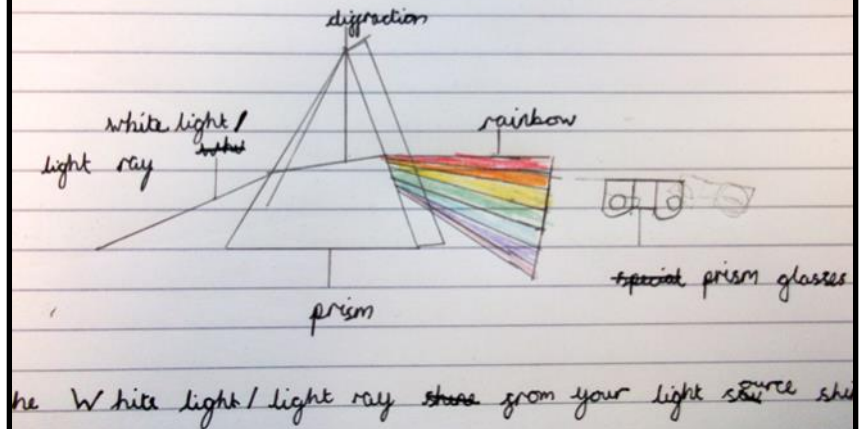 diffraction
white light /
light ray
rainbow
special prism glasses
prism
he White light / light ray shine from your light source shi